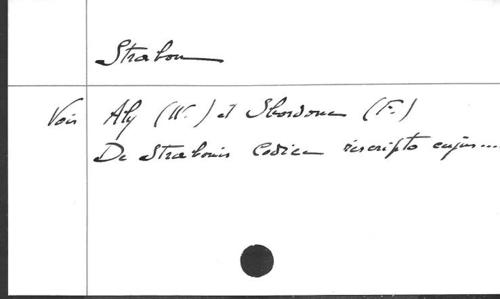 Strabon
Voir Aly (W.) et Sbordone (F.)
De Strabonis Codice rescripto cujus...